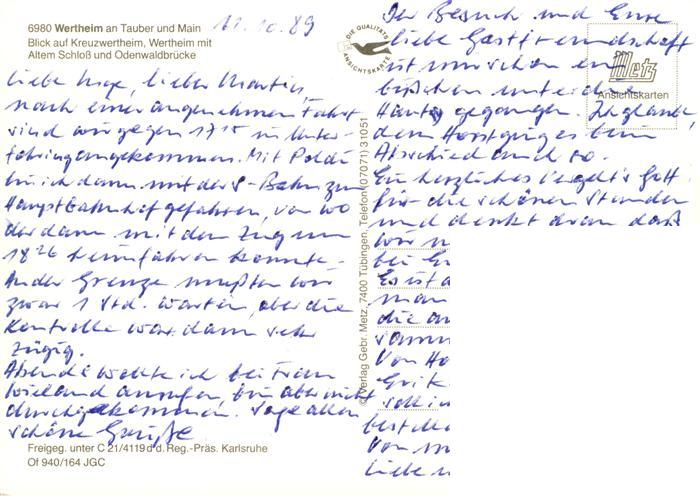 6980 Wertheim an Tauber und Main
Blick auf Kreuzwertheim, Wertheim mit
Altem Schloß und Odenwaldbrücke
11.10.89
Liebe Inge, lieber Martin,
nach einer angenehmen Fahrt
sind wir gegen 17 15 in Unter-
föhring angekommen. Mit Poldi
bin ich dann mit der S-Bahn zum
Hauptbahnhof gefahren, von wo
der dann mit dem Zug um
18 26 heimfahren konnte.
An der Grenze mußten wir
zwar 1 Std. warten, aber die
Kontrolle war dann sehr
zügig.
Abends wollte ich bei Fram
Wieland anrufen, bin aber nicht
durchgekommen. Sage allen
schöne Grüße
Freigeg. unter C 21/4119 d. d. Reg.-Präs. Karlsruhe
Of 940/164 JGC
DIE QUALITÄTS
ANSICHTSKARTE
© Verlag Gebr. Metz, 7400 Tübingen, Telefon (0 70 71) 3 10 51
Metz
Ansichtskarten
Der Besuch und Eure
liebe Gastfreundschaft
ist mir schon ein
bißchen unter die
Haut gegangen. Ich glaube,
dem Horst ging es beim
Abschied auch so.
Ein herzliches Vergelt's Gott
für die schönen Stunden
und denkt dran daß
wir
bei
Es ist
man
die
Von
bestelle
Von
Liebe